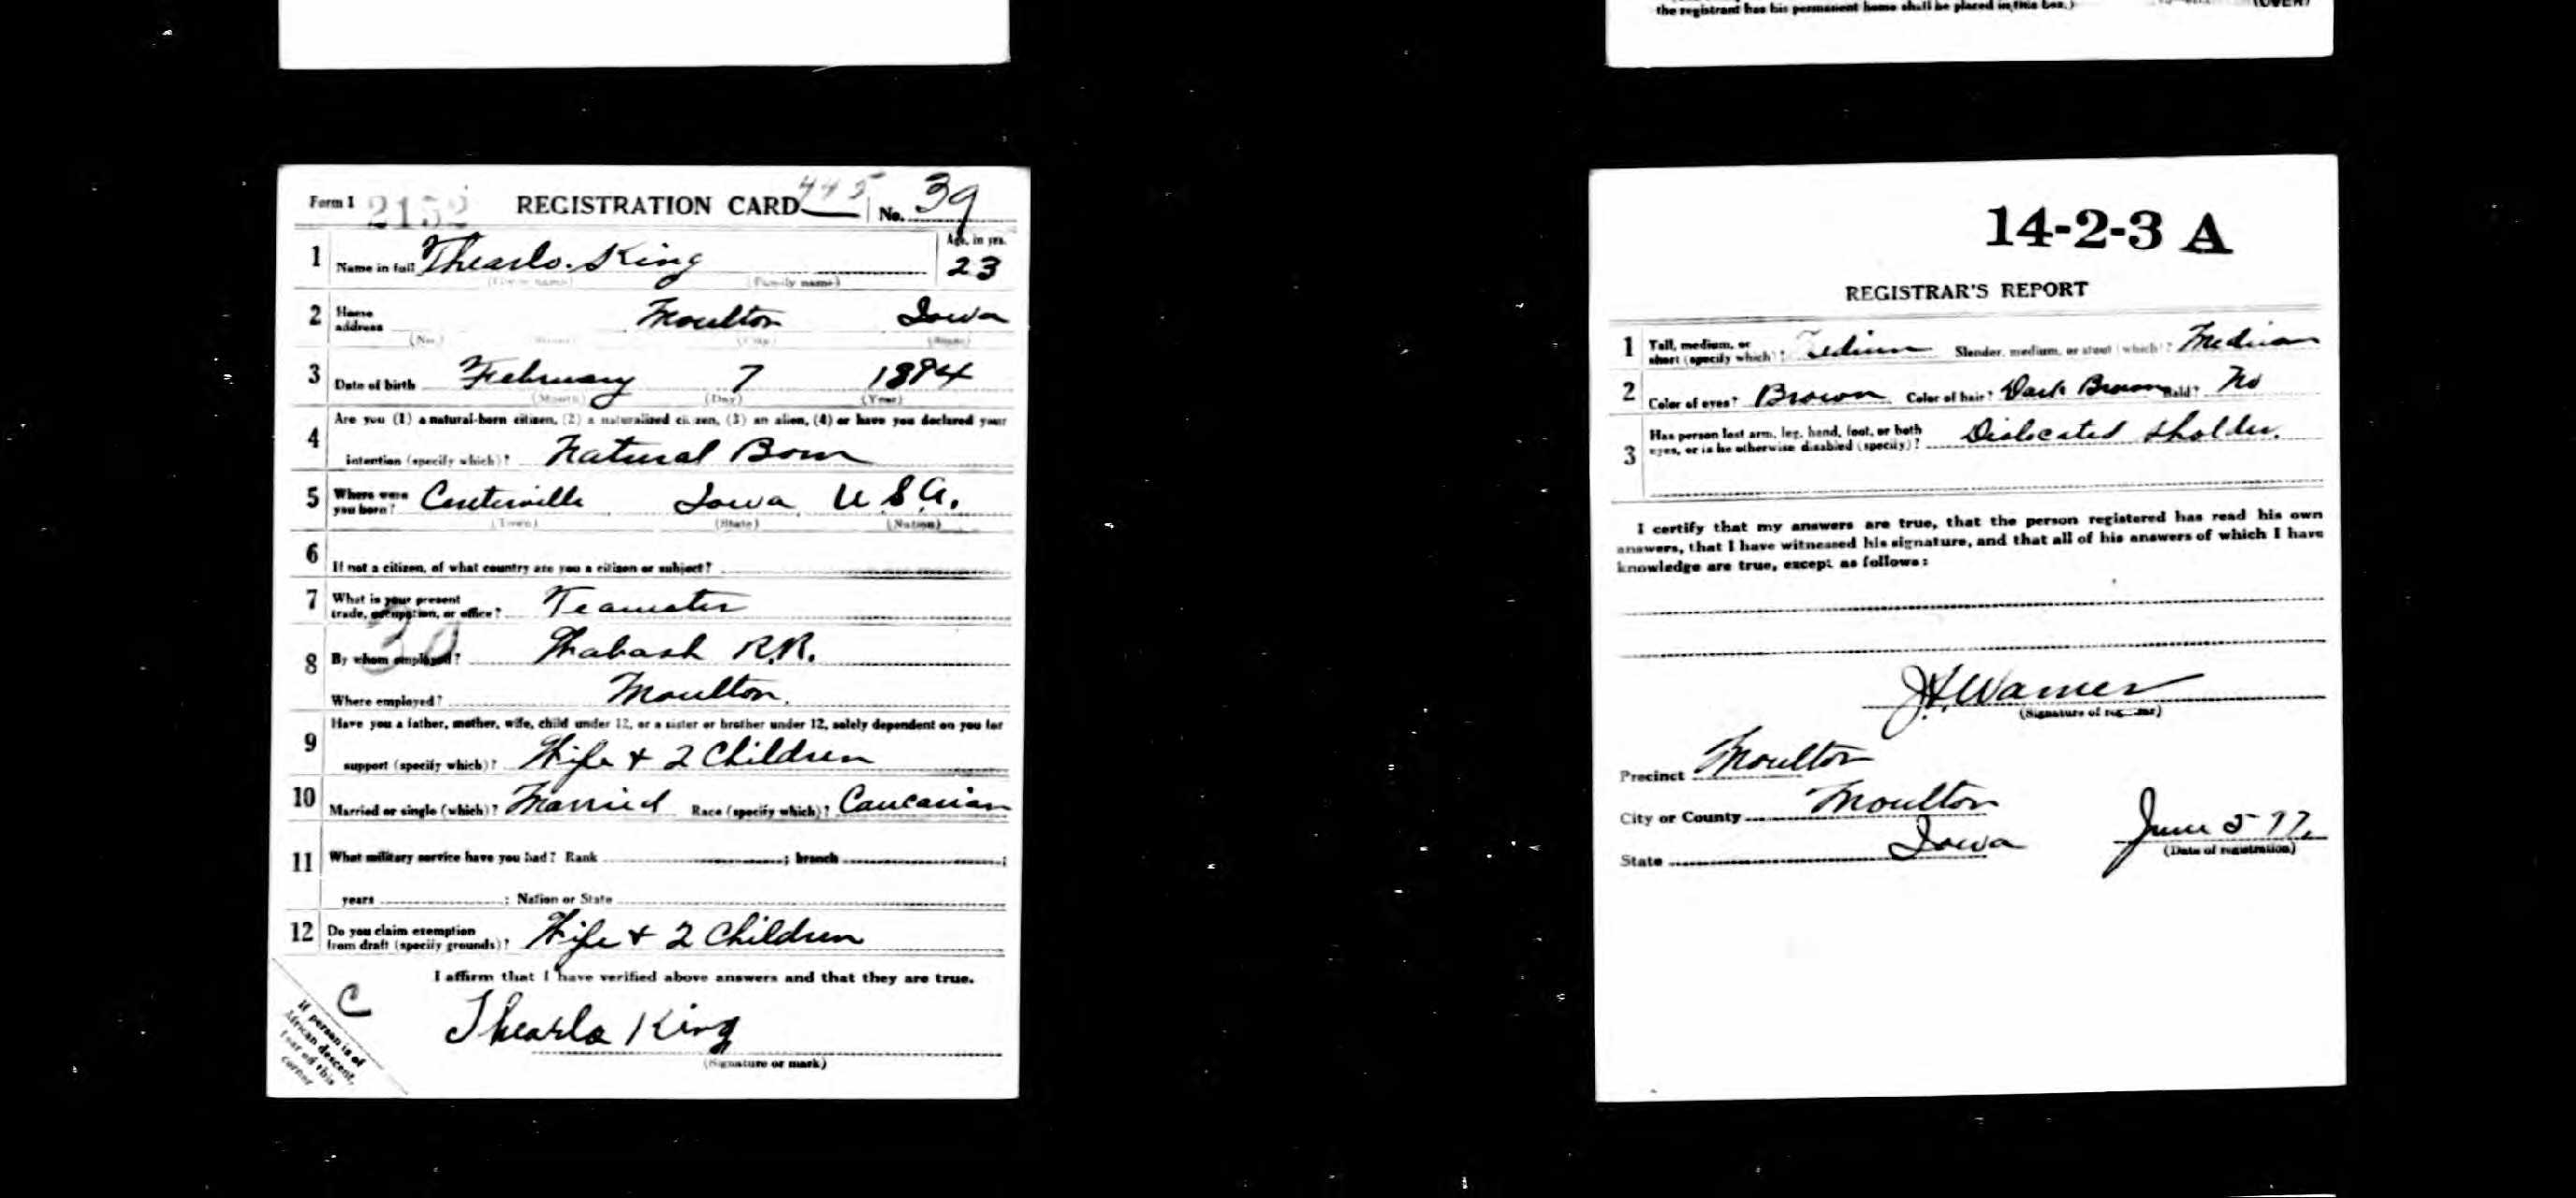 the registrant has his permanent home shall be placed in this box.)
(OVER)
Form 1 2152 REGISTRATION CARD 445 No. 39
1 Name in full Thearlo. King Age, in yrs. 23
(Given name) (Family name)
2 Home address Moulton Iowa
(No.) (Street) (City) (State)
3 Date of birth February 7 1894
(Month) (Day) (Year)
4 Are you (1) a natural-born citizen, (2) a naturalized citizen, (3) an alien, (4) or have you declared your
intention (specify which)? Natural Born
5 Where were you born? Centerville Iowa U.S.A.
(Town) (State) (Nation)
6 If not a citizen, of what country are you a citizen or subject?
7 What is your present trade, occupation, or office? Teamster
8 By whom employed? Wabash R.R.
Where employed? Moulton.
9 Have you a father, mother, wife, child under 12, or a sister or brother under 12, solely dependent on you for
support (specify which)? Wife + 2 Children
10 Married or single (which)? Married Race (specify which)? Caucasian
11 What military service have you had? Rank ; branch ;
years ; Nation or State
12 Do you claim exemption from draft (specify grounds)? Wife + 2 Children
I affirm that I have verified above answers and that they are true.
C
If person is of
African descent,
tear off this
corner
Thearlo King
(Signature or mark)
14-2-3 A
REGISTRAR'S REPORT
1 Tall, medium, or short (specify which)? Medium Slender, medium, or stout (which)? Medium
2 Color of eyes? Brown Color of hair? Dark Brown Bald? No
3 Has person lost arm, leg, hand, foot, or both
eyes, or is he otherwise disabled (specify)? Dislocated sholder.
I certify that my answers are true, that the person registered has read his own
answers, that I have witnessed his signature, and that all of his answers of which I have
knowledge are true, except as follows:
J.H. Warner
(Signature of registrar)
Precinct Moulton
City or County Moulton
State Iowa June 5-17.
(Date of registration)